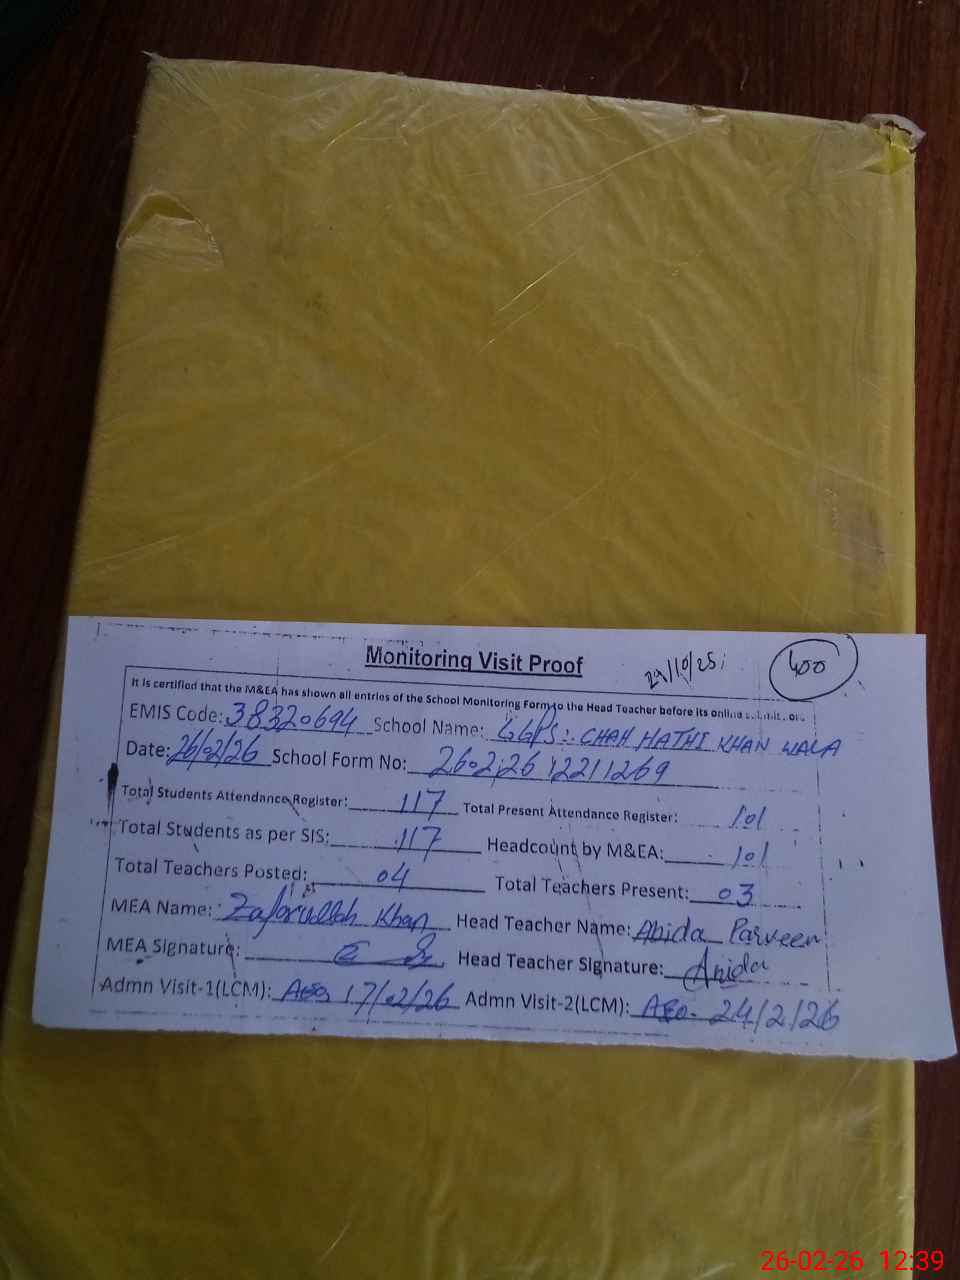 Monitoring Visit Proof 29/10/25 400
It is certified that the M&EA has shown all entries of the School Monitoring Form to the Head Teacher before its online
EMIS Code: 38320694 School Name: GGPS: CHAH HATHI KHAN WALA
Date: 26/02/26 School Form No: 260226122111269
Total Students Attendance Register: 117 Total Present Attendance Register: 101
Total Students as per SIS: 117 Headcount by M&EA: 101
Total Teachers Posted: 04 Total Teachers Present: 03
MEA Name: Zafarullah Khan Head Teacher Name: Abida Parveen
MEA Signature: Head Teacher Signature: Abida
Admn Visit-1(LCM): AEO 17/02/26 Admn Visit-2(LCM): AEO. 24/2/26
26-02-26 12:39